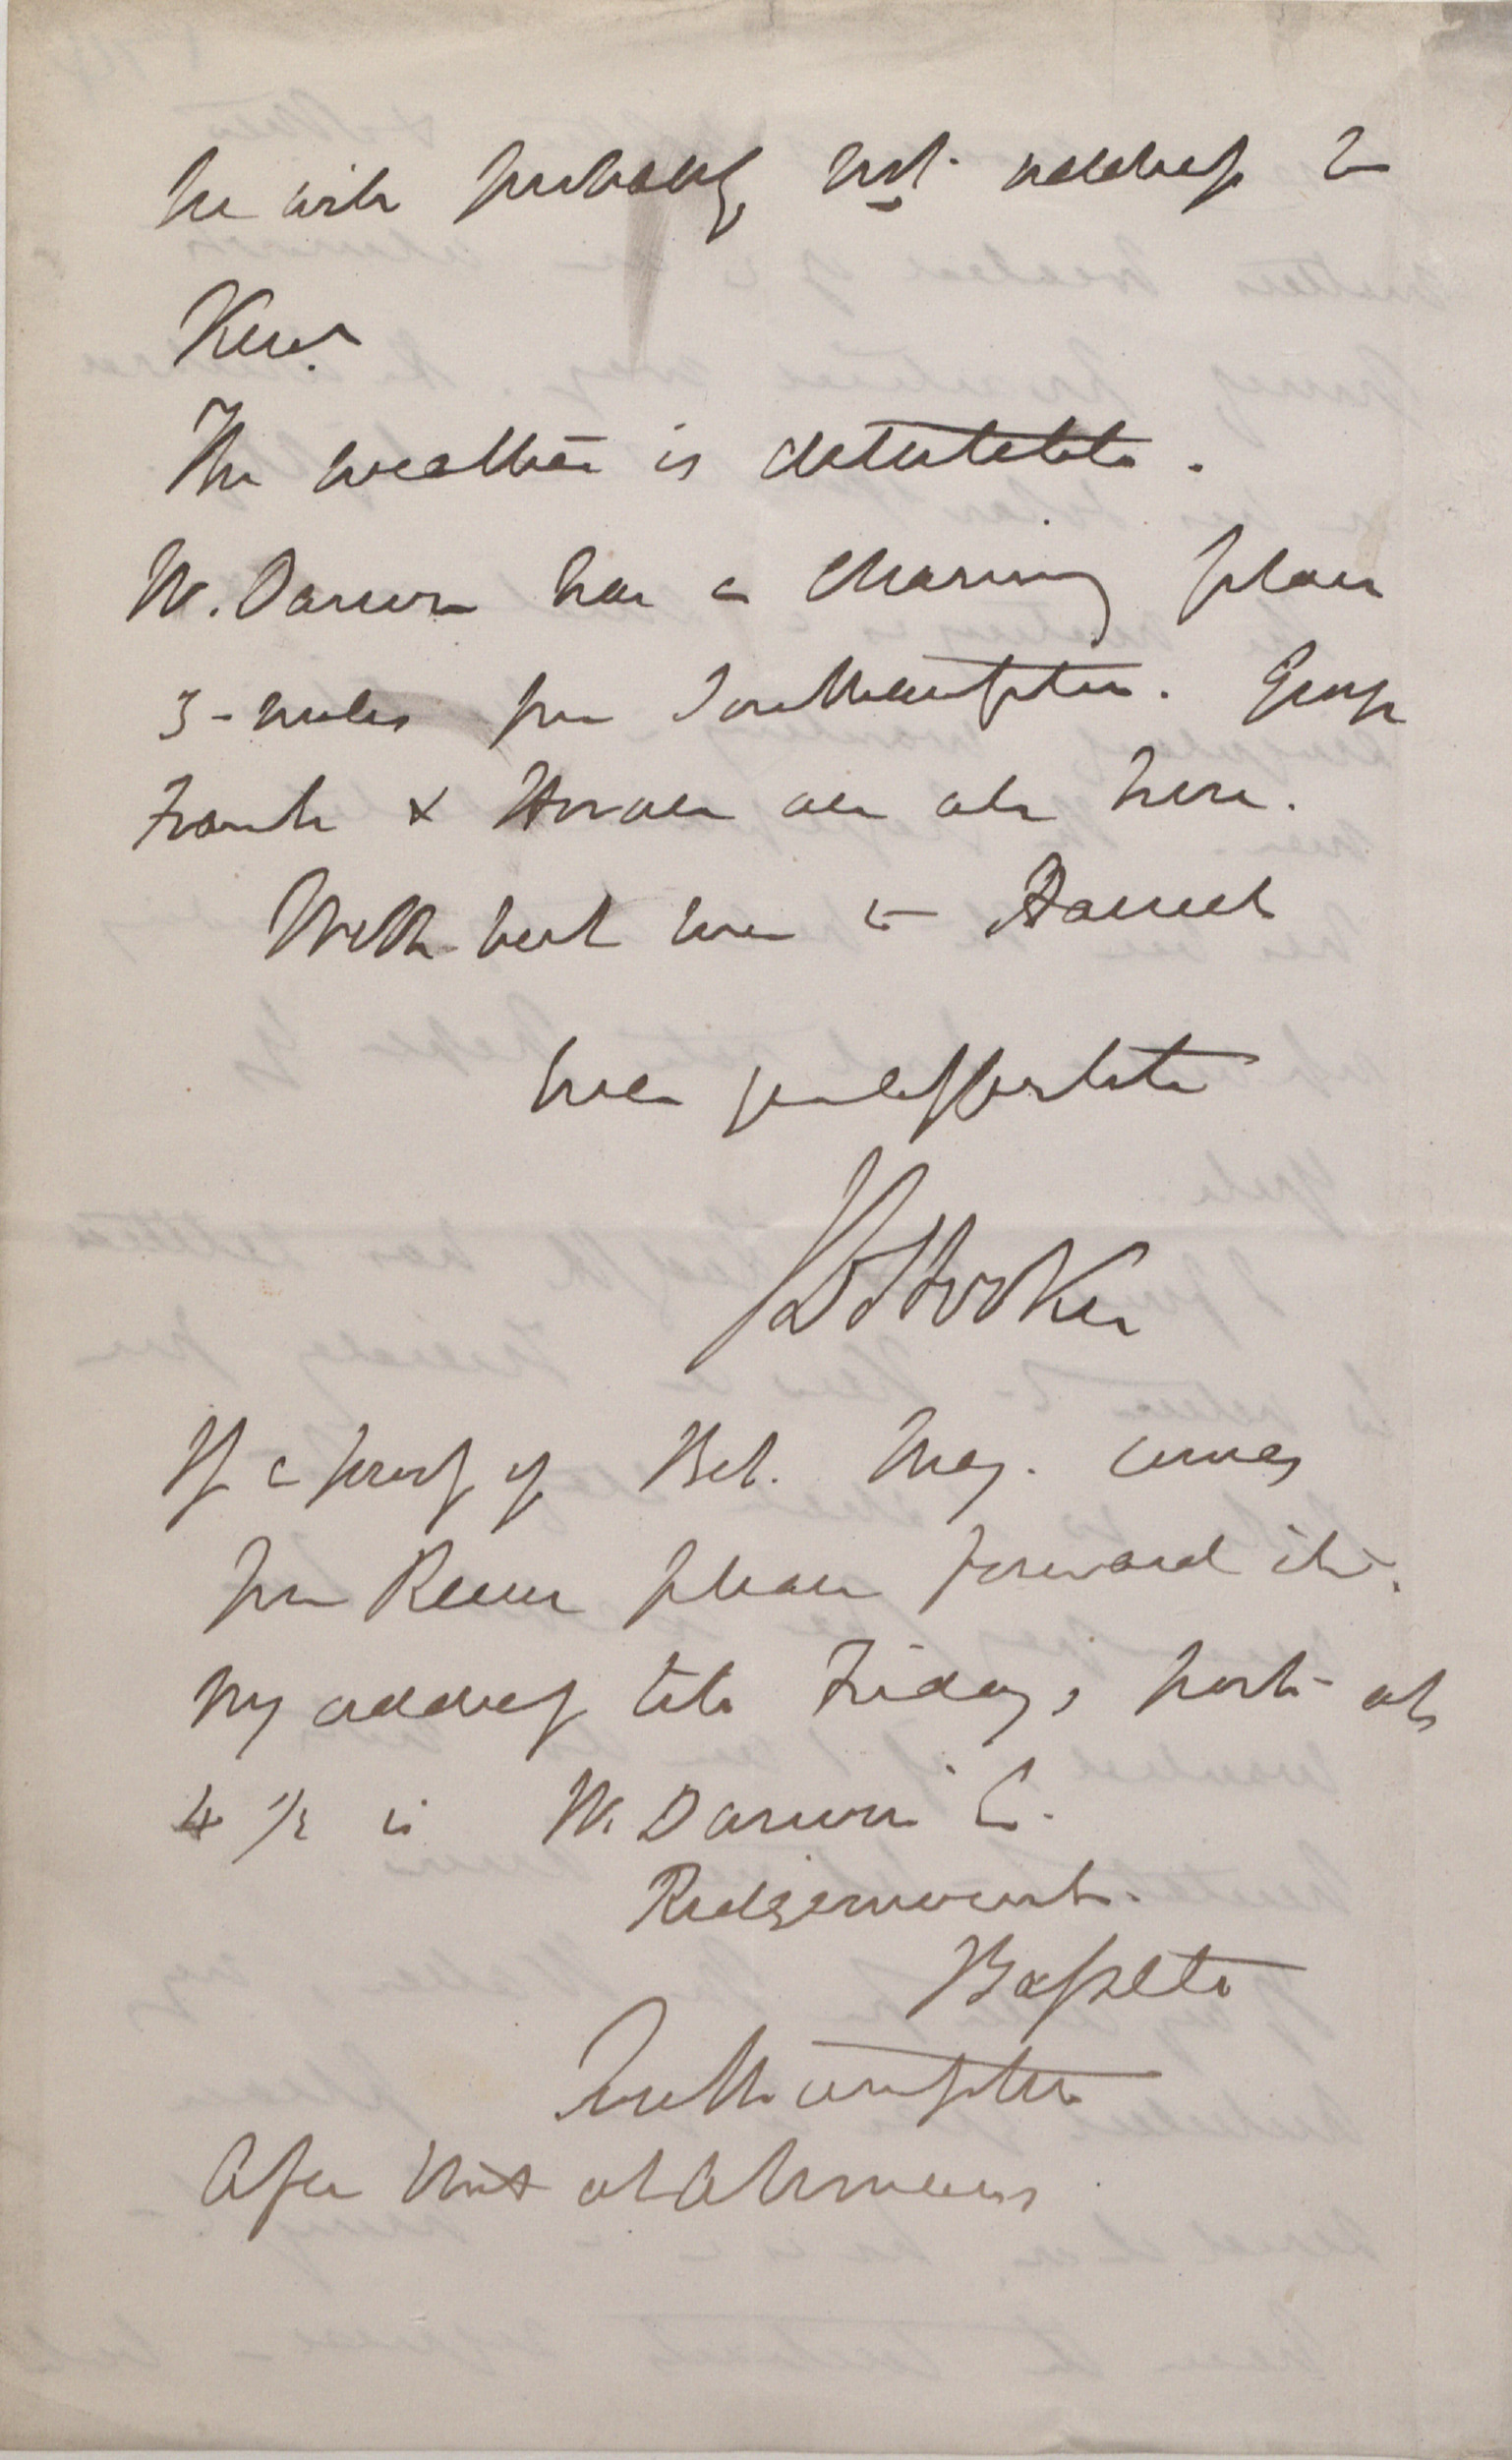 he will probably not address to
Kew.
The weather is detestable.
W. Darwin has a charming place
3-miles from Southampton. George
Frank & Horace are also here.
With best love to Harriet
Ever your affectionate
J D Hooker
If a proof of Bot. Mag. comes
from Reeve please forward it.
My address till Friday's post at
4 1/2 is W. Darwin E.
Ridgemount.
Bassett
Southampton
After that at Athenaeum